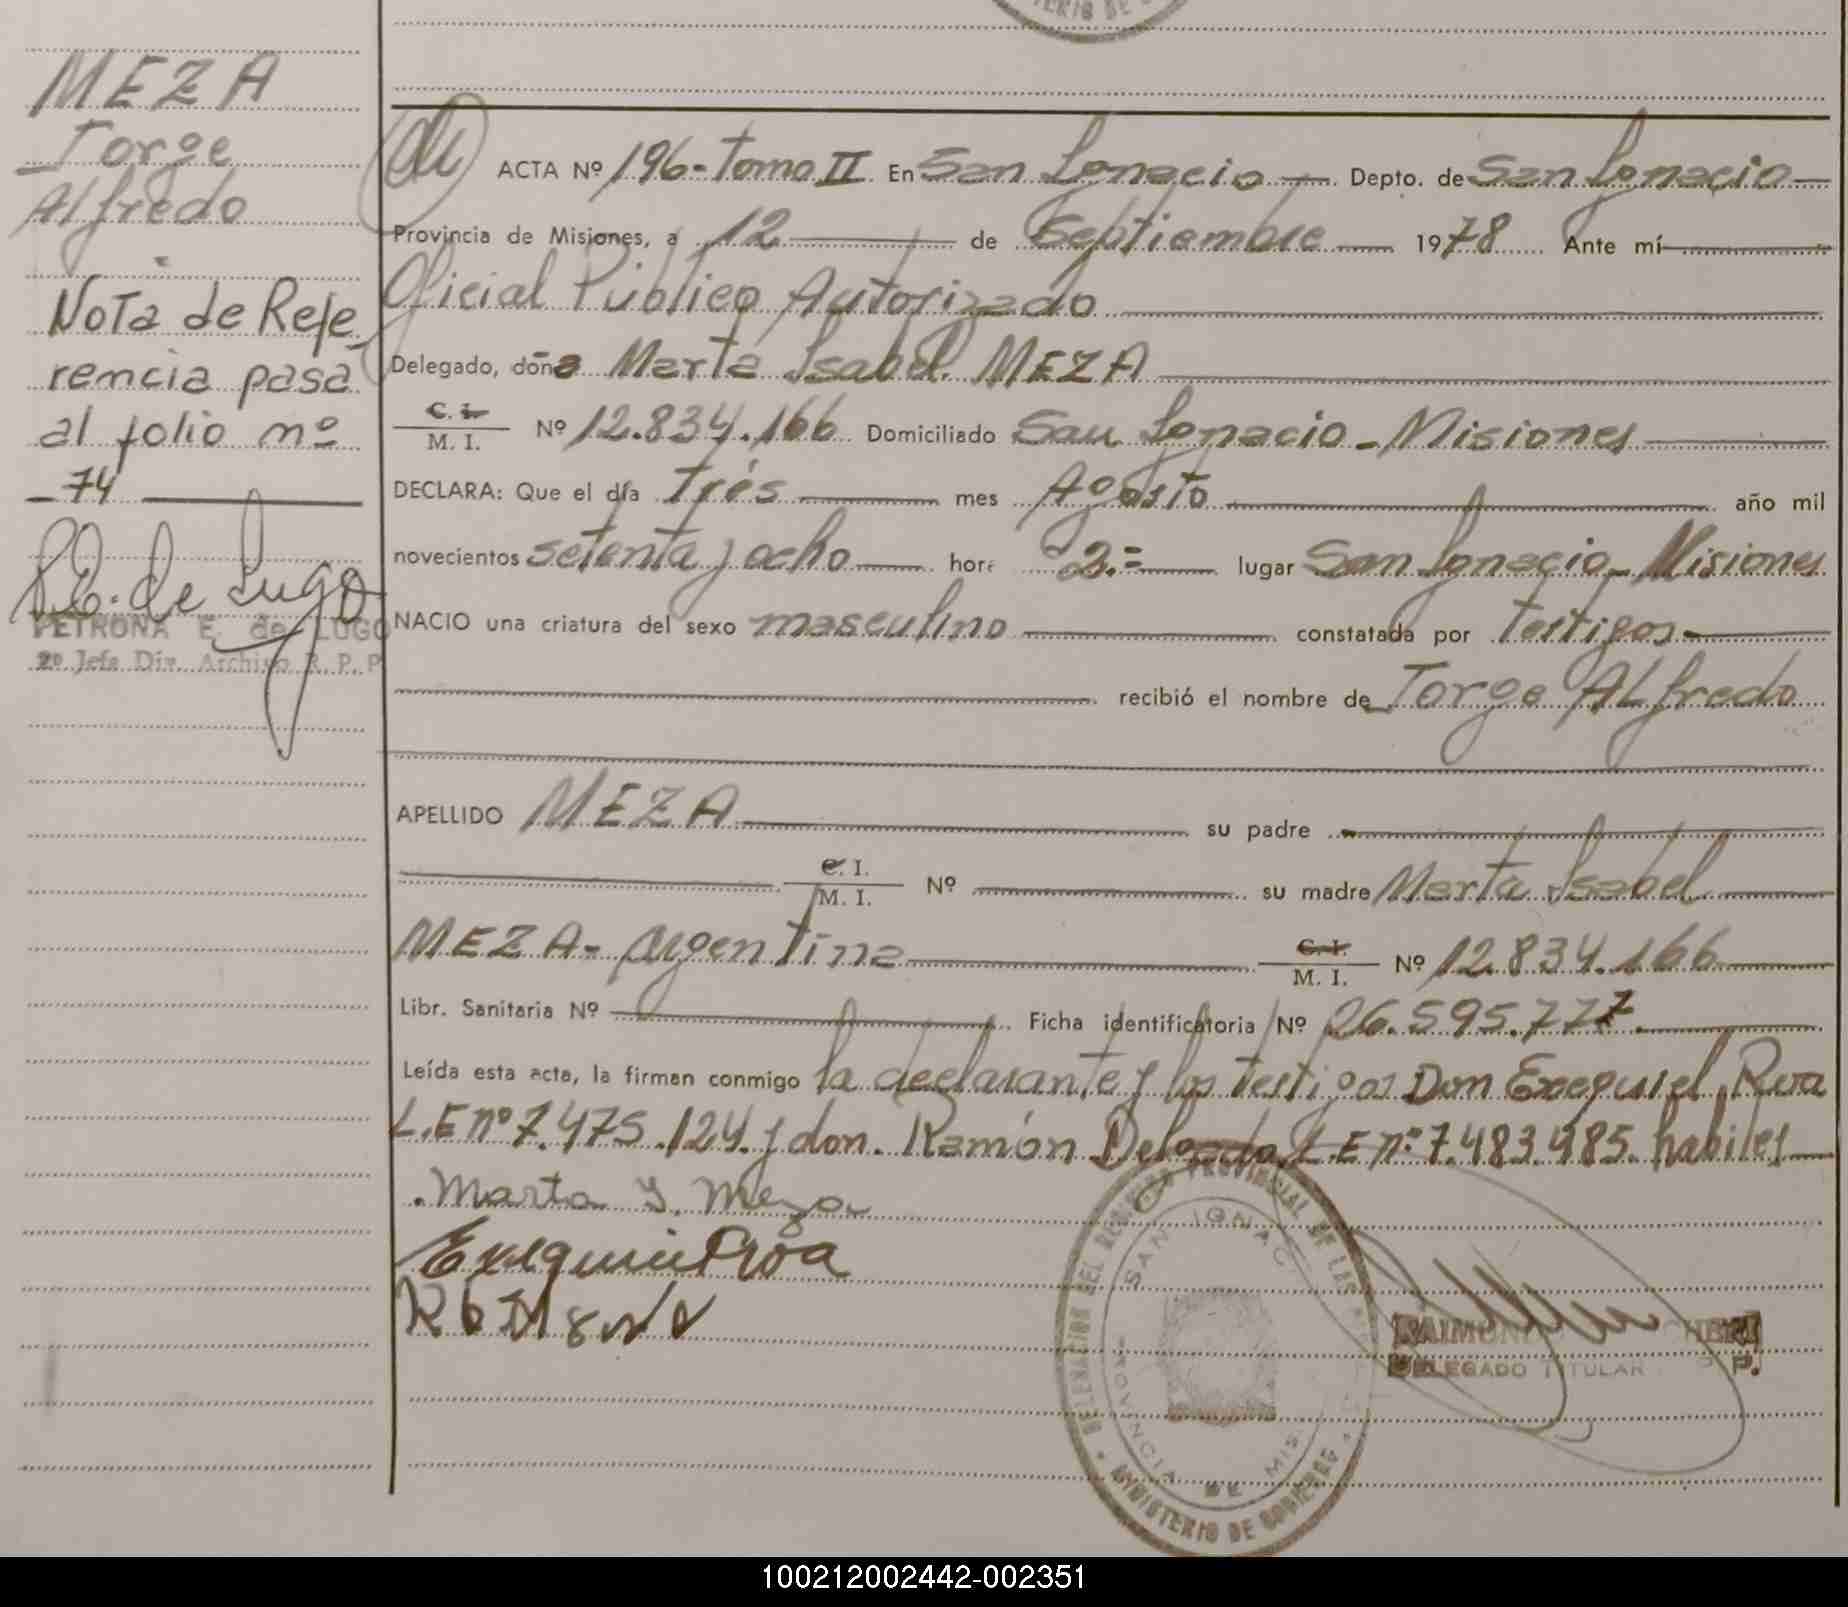 MEZA
Jorge
Alfredo
Nota de Refe
rencia pasa
al folio nº
74
P.E. de Lugo
PETRONA E. de LUGO
2º Jefe Div. Archivo R. P. P.
TERIO DE
ACTA Nº 196-Tomo II En San Ignacio Depto. de San Ignacio
Provincia de Misiones, a 12 de Septiembre 1978 Ante mí
Oficial Público Autorizado
Delegado, doña Marta Isabel MEZA
C. I.
M. I. Nº 12.834.166 Domiciliado San Ignacio - Misiones
DECLARA: Que el día Trés mes Agosto año mil
novecientos setenta y ocho hora 2.= lugar San Ignacio - Misiones
NACIO una criatura del sexo masculino constatada por testigos
recibió el nombre de Jorge Alfredo
APELLIDO MEZA su padre
C. I.
M. I. Nº su madre Marta Isabel
MEZA - argentina C. I.
M. I. Nº 12.834.166
Libr. Sanitaria Nº Ficha identificatoria Nº 26.595.777
Leída esta acta, la firman conmigo la declarante y los testigos Don Exequiel Roa
L.E nº 7.475.124. y don. Ramón Delgado L.E nº 7.483.985. habiles
Marta I. Meza
Exequiel Roa
DEL REGISTRO PROVINCIAL DE LAS
SAN IGNAC
PROVINCIA DE MIS.
MINISTERIO DE GOBIERNO
DELEGADO TITULAR P.
100212002442-002351